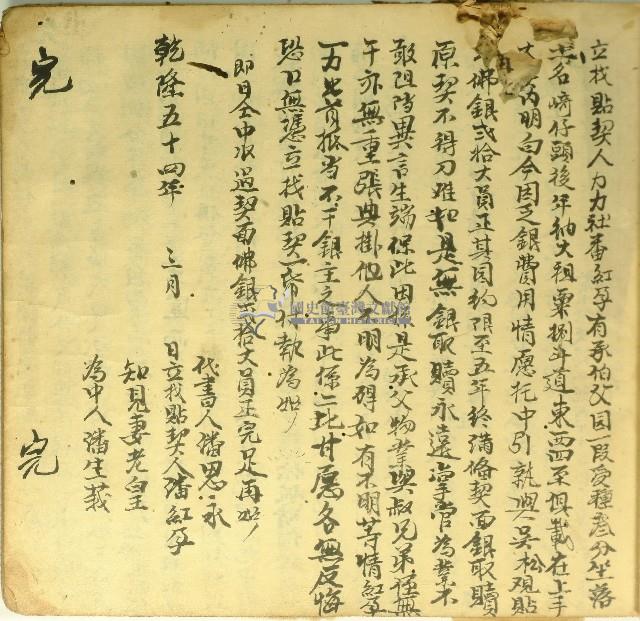 立找貼契人力力社番紅孕有承伯父因一段受種叁分坐落
名崎仔頭後年納大租粟捌斗道東西四至俱載在上手
明白今因乏銀費用情愿托中引就與人吳松观貼
佛銀弍拾大員正其因約限至五年終滿俻契面銀取贖
原契不得刁难如是無銀取贖永遠掌管為業不
敢阻擋異言生端保此因是承父物業與叔兄弟侄無
干亦無重張典掛他人不明為碍如有不明等情紅孕
一力出首抵当不干銀主之事此係二比甘愿各無反悔
恐口無憑立找貼契一帋付执為炤
即日仝中收過契面佛銀弍拾大員正完足再炤
代書人潘思永
乾隆五十四年 三月 日立找貼契人潘紅孕
知見妻老皇
為中人潘生莪
完
完
國史館臺灣文獻館
TAIWAN HISTORICA